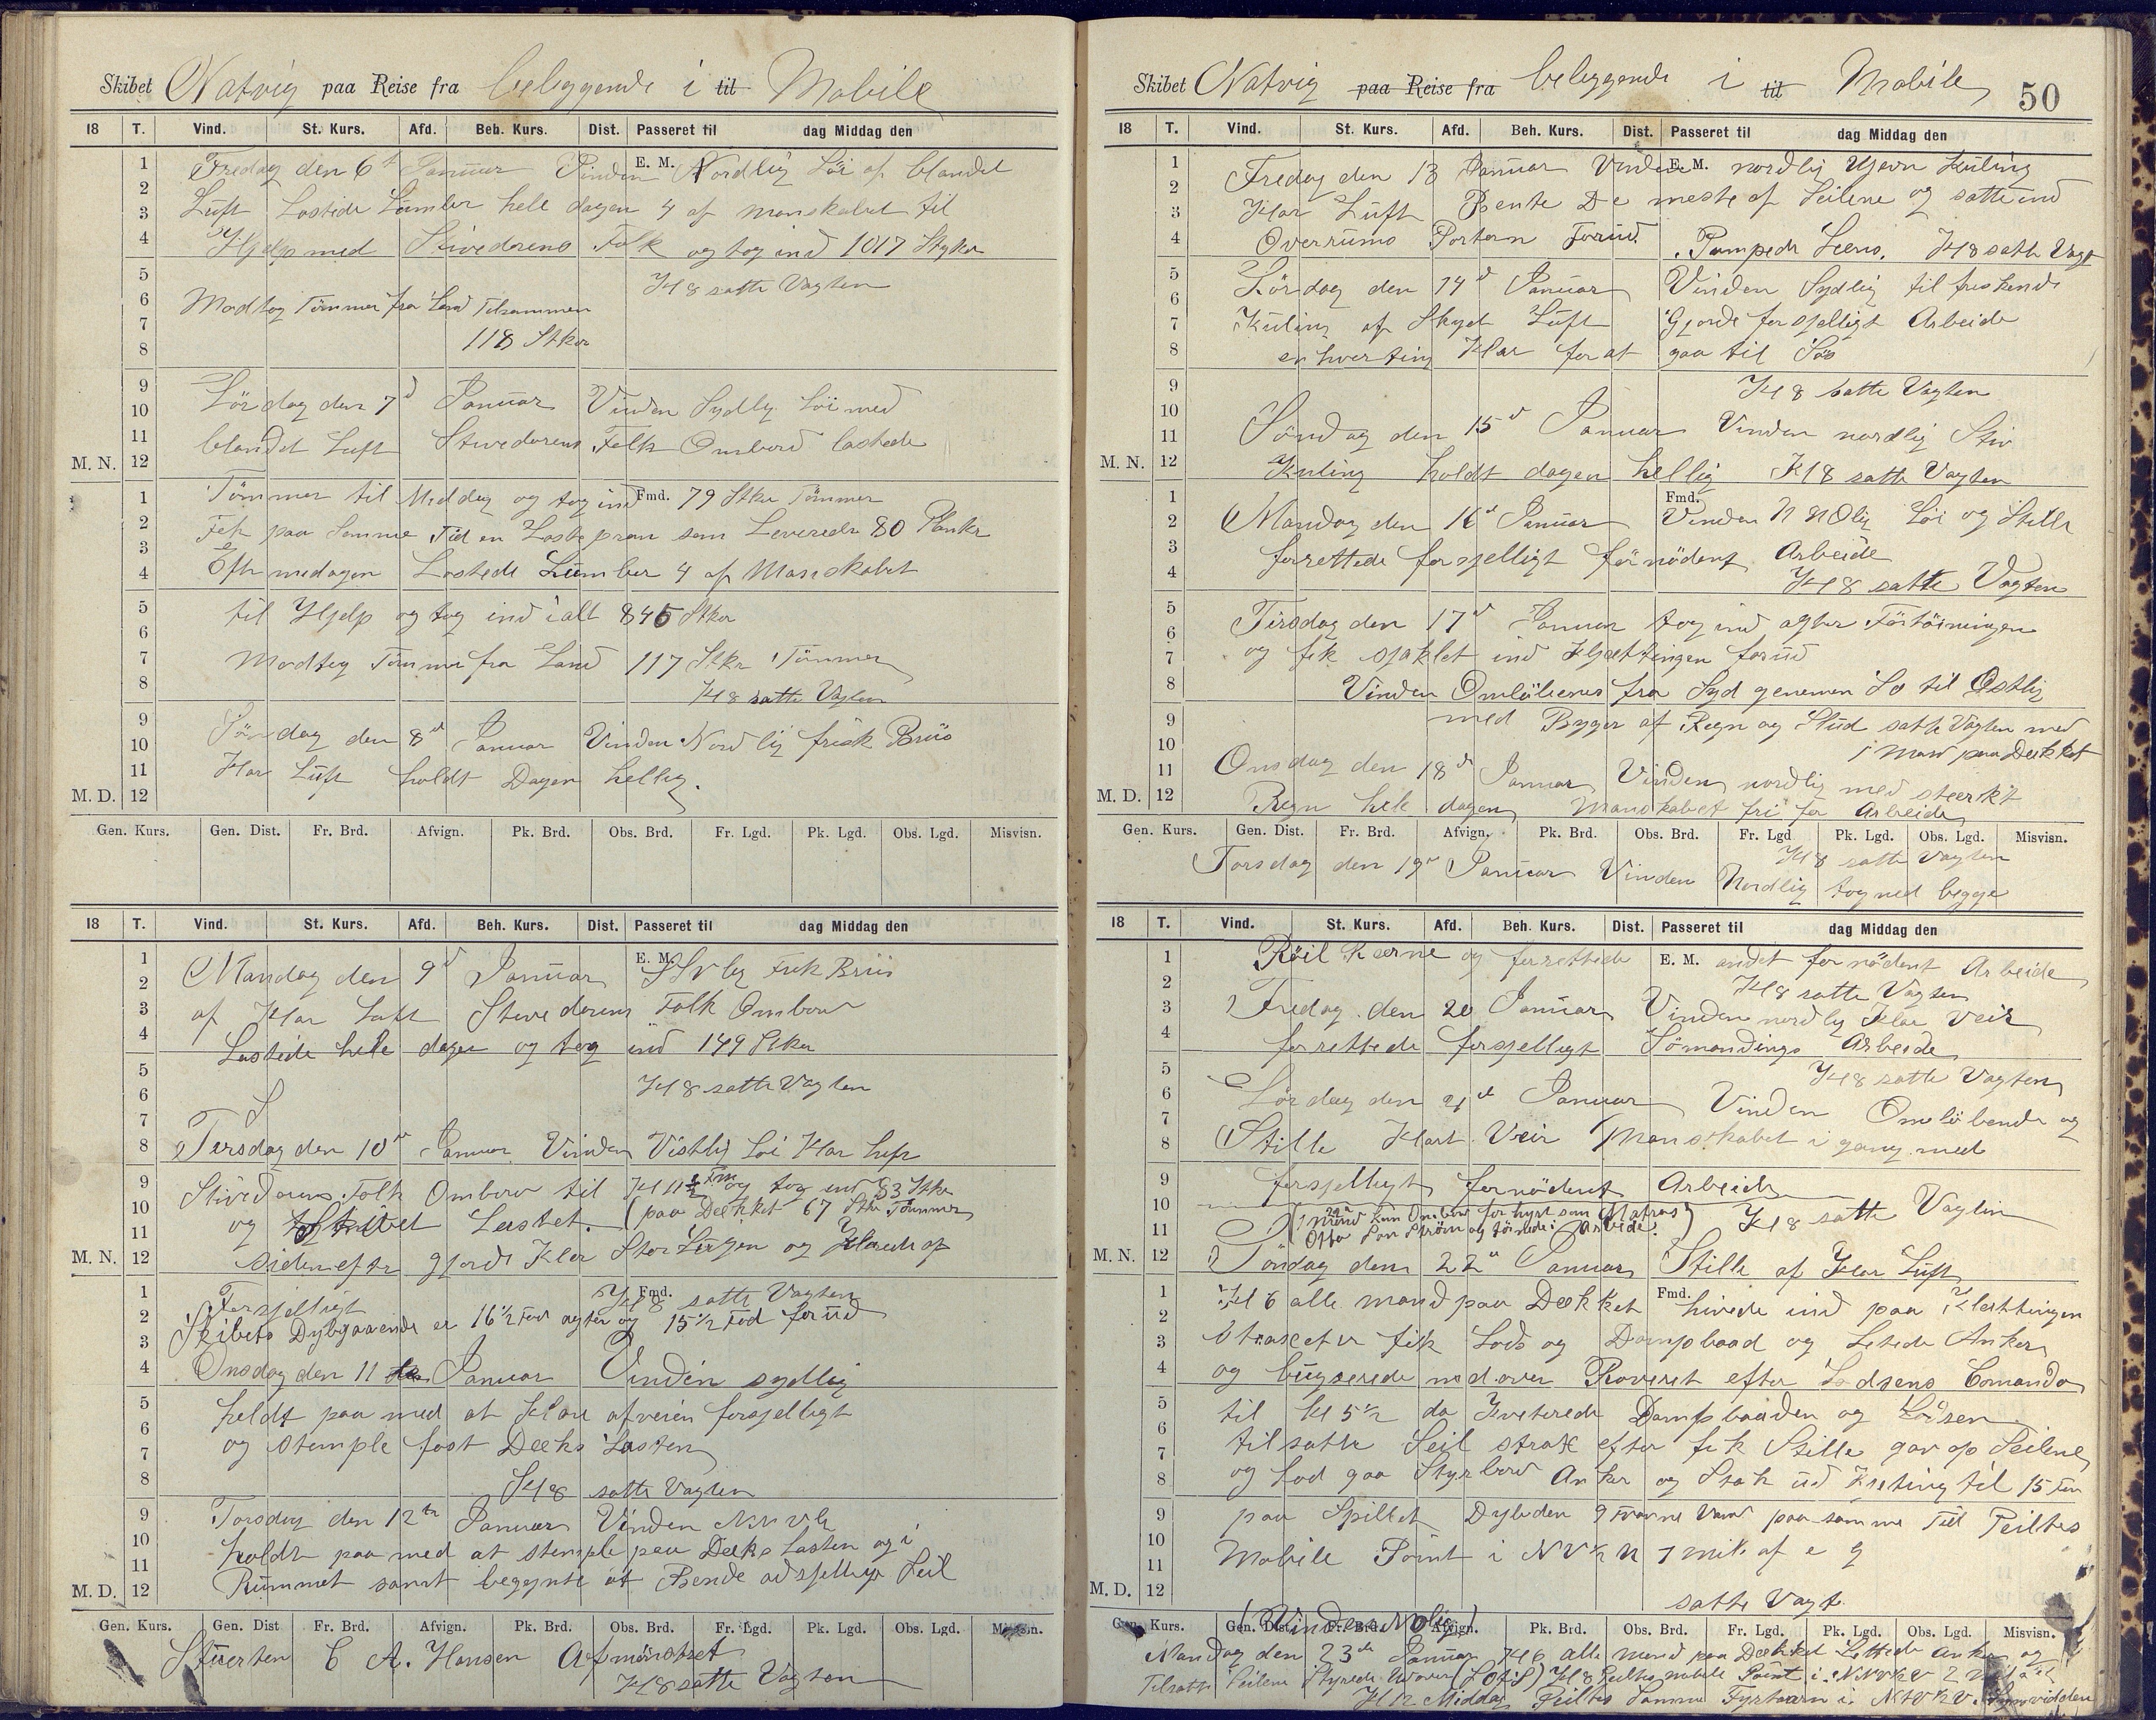 Skibet Natvig paa Reise fra beleggende i til Mobile
18 T. Vind. St. Kurs. Afd. Beh. Kurs. Dist. Passeret til dag Middag den
1 Fredag den 6te Januar Vinden E. M. Nordlig Löi af blandet
2 Luft Lastede Lumber hele dagen 4 af manskabet til
3
4 Hjelp med Stivedorens Folk og tog ind 1017 Stykker
5 Kl 8 satte Vagten
6 Modtog Tömmer fra Land Tilsammen
7 118 Stkr
8
9 Lördag den 7d Januar Vinden Sydlig Löi med
10
11 blandet Luft Stivedorens Folk Ombord lastede
M. N. 12
1 Tömmer til Middag og tog ind Fmd. 79 Stkr Tömmer
2 Fik paa Samme Tid en Lastepram som Leverede 80 Planker
3
4 Eftermedagen Lastede Lumber 4 af Manskabet
5 til Hjelp og tog ind ialt 845 Stkr
6
7 Modtog Tömmer fra Land 117 Stkr Tömmer
8 Kl 8 satte Vagten
9 Söndag den 8d Januar Vinden Nordlig frisk Briis
10
11 Klar Luft holdt Dagen hellig.
M. D. 12
Gen. Kurs. Gen. Dist. Fr. Brd. Afvign. Pk. Brd. Obs. Brd. Fr. Lgd. Pk. Lgd. Obs. Lgd. Misvisn.
18 T. Vind. St. Kurs. Afd. Beh. Kurs. Dist. Passeret til dag Middag den
1 Mandag den 9d Januar E. M. Frisk Briis
2
3 af Klar Luft Stivedorens Folk Ombord
4 Lastede hele dagen og tog ind 149 Stkr
5 Kl 8 satte Vagten
6
7
8 Tirsdag den 10d Januar Vinden Vestlig Löi Klar Luft
9 Stivedorens Folk Ombord til Kl 11½ Fm og tog ind 83 Stkr
10 og Skibet Lastet. (paa Dækket 67 Stkr Tömmer
11
M. N. 12 siden efter gjorde Klar Stor Lugen og Klarede op
1 Forsjelligt Kl 8 Fmd. satte Vagten
2 Skibets Dybgaaende er 16½ Fod agter og 15½ Fod forud
3
4 Onsdag den 11 Januar Vinden sydlig
5 holdt paa med at Klare afveien forsjelligt
6 og stemple fast Deeks Lasten
7
8 Kl 8 satte Vagten
9 Torsdag den 12te Januar Vinden
10 holdt paa med at stemple paa Deeks Lasten og i
11 Rummet samt begynte at Bende adsjellige Seil
M. D. 12
Gen. Kurs. Gen. Dist Fr. Brd. Afvign. Pk. Brd. Obs. Brd. Fr. Lgd. Pk. Lgd. Obs. Lgd. Misvisn.
Stuerten C A. Hansen Afmönstret
Kl 8 satte Vagten
Skibet Natvig paa Reise fra beleggende i til Mobile 50
18 T. Vind. St. Kurs. Afd. Beh. Kurs. Dist. Passeret til dag Middag den
1 Fredag den 13 Januar Vinden E. M. nordlig Ujevn Kuling
2
3 Klar Luft Bente De meste af Seilene og satte ind
4 Overrums Porten Forud. Pumpede Læns. Kl 8 satte Vagt
5 Lördag den 14d Januar Vinden Sydlig til friskende
6
7 Kuling af Skyet Luft Gjorde forsjelligt Arbeide
8 enhverting Klar for at gaa til Söes
9 Kl 8 satte Vagten
10
11 Söndag den 15d Januar Vinden nordlig Stiv
M. N. 12 Kuling holdt dagen hellig Kl 8 satte Vagten
1 Fmd.
2 Mandag den 16d Januar Vinden N N Olig Löi og Stille
3 forrettede forsjelligt förnödent Arbeide
4 Kl 8 satte Vagten
5 Tirsdag den 17d Januar tog ind agter Förtöiningen
6
7 og fik sjaklet ind Kjættingen forud
8 Vinden Omlöbenes fra Syd genemen So til Östlig
9 med Byger af Regn og Slud satte Vagten med
10 1 Man paa Dækket
11 Onsdag den 18d Januar Vinden nordlig med stærkt
M. D. 12 Regn hele dagen Manskabet fri for Arbeide
Gen. Kurs. Gen. Dist. Fr. Brd. Afvign. Pk. Brd. Obs. Brd. Fr. Lgd Pk. Lgd. Obs. Lgd. Misvisn.
Kl 8 satte Vagten
Torsdag den 19d Januar Vinden Nordlig tog ned begge
18 T. Vind. St. Kurs. Afd. Beh. Kurs. Dist. Passeret til dag Middag den
1 Röil Rærne og forrettede E. M. andet fornödent Arbeide
2 Kl 8 satte Vagten
3 Fredag den 20 Januar Vinden nordlig Klar Veir
4 forrettede forsjelligt Sömandings Arbeide
5 Kl 8 satte Vagten
6 Lördag den 21d Januar Vinden Omlöbende og
7
8 Stille Klart Veir Manskabet i gang med
9 forsjelligt fornödent Arbeide
10 (1 Mand kom Ombord forhyrt som Matros) Kl 8 satte Vagten
11 Otto Ström og törnede i Arbeide.
M. N. 12 Söndag den 22d Januar Stille af Klar Luft
1 Kl 6 alle mand paa Dækket Fmd. hivede ind paa Kjættingen
2
3 Straxetter fik Lods og Dampbaad og Letede Anker
4 og bugserede nedover Raveret efter Lodsens Comando
5 til Kl 5½ da Kviterede Dampbaaden og Lodsen
6
7 tilsatte Seil strax efter fik Stille gav op Seilene
8 og lod gaa Styrbord Anker og Stak ud Kjeting til 15 Fvn
9 paa Spillet Dybden 9 Favne Vand paa samme Tid Peiltes
10
11 Mobile Point i NV½N 7 mil af
M. D. 12 satte Vagt
Gen. Kurs. Gen. Dist. Fr. Brd. Afvign. Pk. Brd. Obs. Brd. Fr. Lgd. Pk. Lgd. Obs. Lgd. Misvisn.
(Vinden Nolig)
Mandag den 23de Januar Kl 6 alle mand paa Dækket Lettede Anker og
Tilsatte Seilene Styrede Udover Kl 8 Peiltes Mobile Point i
Kl 12 Middag Peiltes Samme Fyrtaarn i